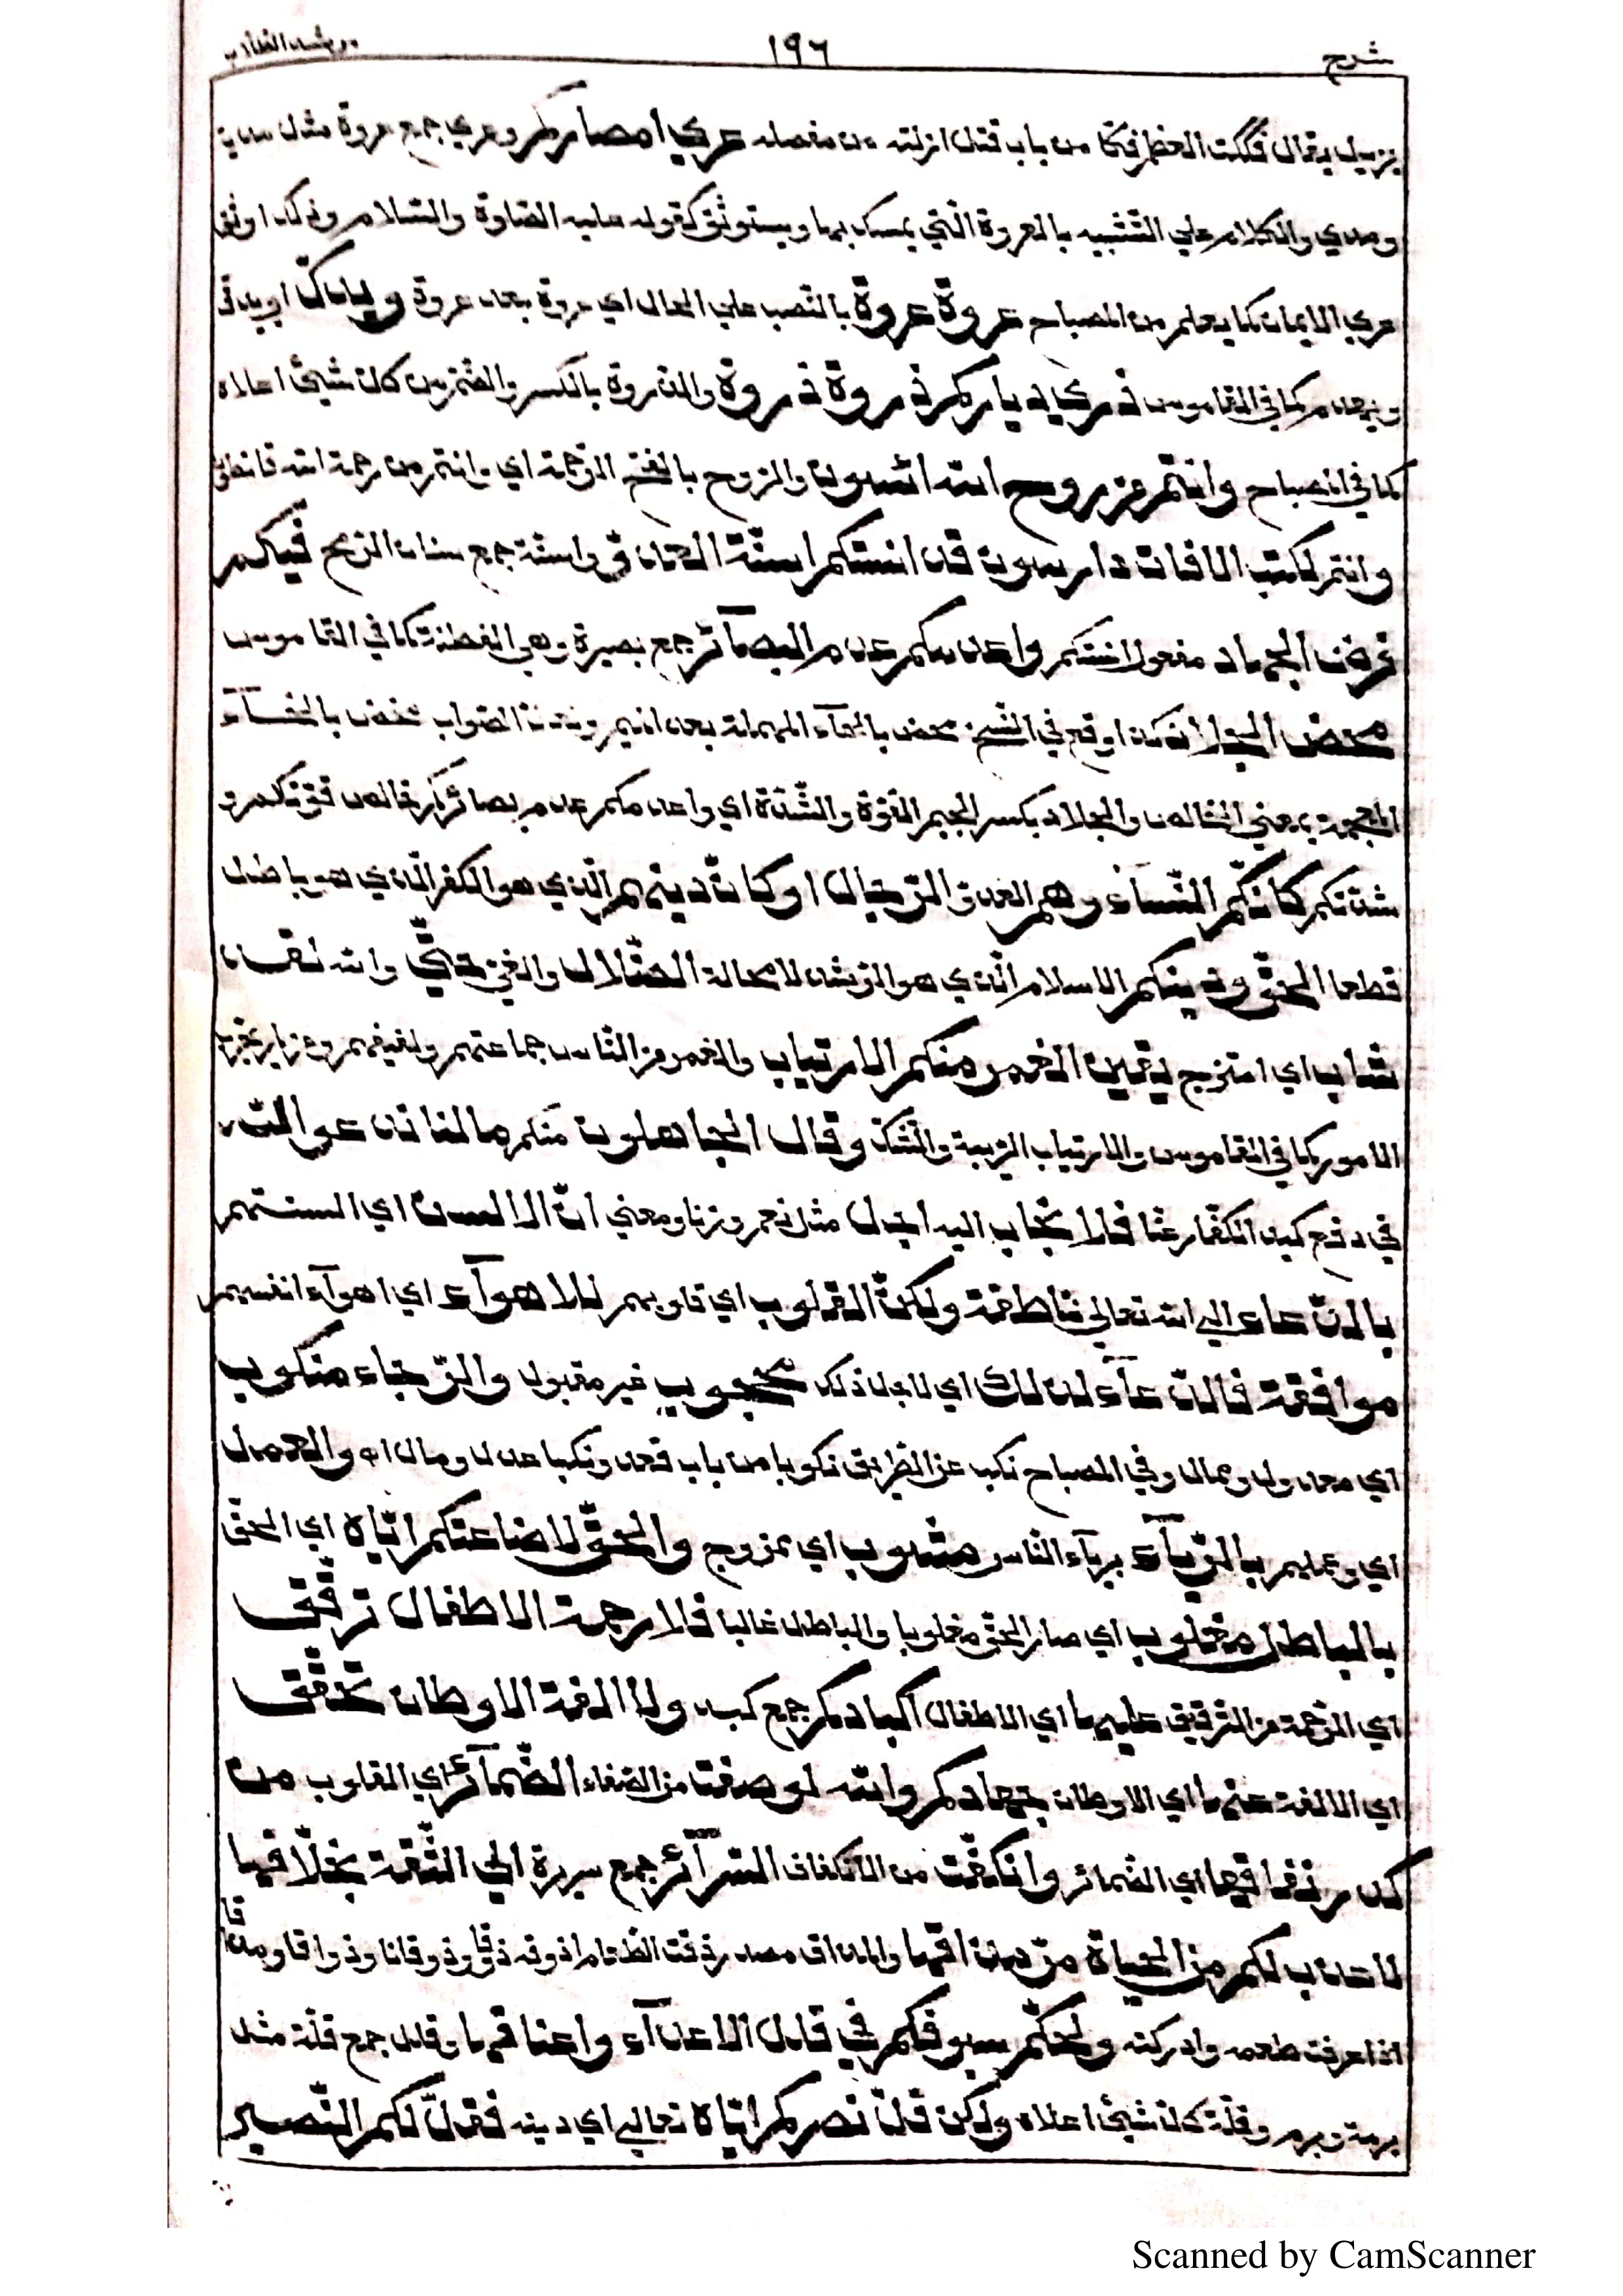 شرح
١٩٦
يزيل يقال فككت العظم فكا من باب قتل ازلته من مفصله عري امصاركم وعري جمع عروة مثل مدية
ومدي والكلام علي التشبيه بالعروة التي يمسك بها ويستوثق كقوله عليه الصلوة والسلام وذلك اوثق
عري الايمان كما يعلم من المصباح عروة عروة بالنصب علي الحال اي عروة بعد عروة
ويهدم كما في القاموس ذري دياركم ذروة ذروة والذروة بالكسر والضم من كل شيئ اعلاه
كما في المصباح وانتم من روح الله ائسون والروح بالفتح الرحمة اي وانتم من رحمة الله قانطون
وانتم لكتب الافات دارسون قد انستكم اسنة العدو واسنة جمع سنان الرمح فيكم
فرض الجهاد مفعول انستكم واعدمكم عدم البصآئر جمع بصيرة وهي الفطنة كما في القاموس
محض الجلاد كذا وقع في النسخ محض بالحآء المهملة بعد الميم الصواب مخض بالخآء
المعجمة بمعني الخالص والجلاد بكسر الجيم القوة والشدة اي واعدمكم عدم بصائركم خالص قوتكم و
شدتكم كانكم النسآء وهم العدو الرجال او كان دينهم الذي هو الكفر الذي هو باطل
قطعا الحق ودينكم الاسلام الذي هو الرشد لا محالة الضلال والغي حتي والله لقد
شاب اي امتزج يقين الغمر منكم الارتياب والغمر من الناس جماعتهم ولفيفهم
الامور كما في القاموس والارتياب الريبة والشك وقال الجاهلون منكم مالنا ندعوا الله
في دفع كيد الكفار عنا فلا نجاب اليه اجل مثل نعم وزنا ومعني ان الالسن اي السنتهم
بالدعاء الي الله تعالي ناطقة ولكن القلوب اي قلوبهم للاهوآء اي اهوآء انفسهم
موافقة فالدعآء لذلك اي لاجل ذلك محجوب غير مقبول والرجاء منكوب
اي معدول وممال وفي المصباح نكب عن الطريق نكوبا من باب قعد ونكبا عدل ومال اه والعمل
اي وعملهم بالريآء برياء الناس مشوب اي ممزوج والحق لاضاعتكم اياه اي الحق
بالباطل مغلوب اي صار الحق مغلوبا والباطل غالبا فلا رحمة الاطفال ترقق
اي الرحمة من الترقيق عليها اي الاطفال اكبادكم جمع كبد ولا الفة الاوطان تحقق
اي الالفة عنها اي الاوطان جهادكم والله لو صفت من الصفاء الضمآئر اي القلوب من
كدر نفاقها اي الضمائر وانكفت من الانكفاف السرآئر جمع سريرة الي الثقة بخلاقها
لعذب لكم من الحياة مر مذاقها والمذاق مصدر ذقت الطعام اذوقه ذوقا وذوقانا وذواقا ومذاقا
اذا عرفت طعمه وادركته ولحكم سيوفكم في قلل الاعدآء واعناقها وقلل جمع قلة مثل
برمة وبرم وقلة كل شيئ اعلاه ولكن قل نصركم اياه تعالي اي دينه فقل لكم النصير
Scanned by CamScanner